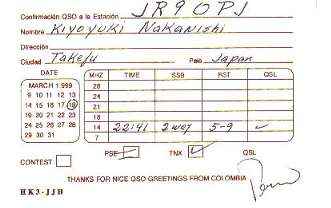 Confirmación QSO a la Estación JR9OPJ
Nombre KIYOYUKI NAKANISHI
Dirección
Ciudad TAKEFU Pais JAPAN
DATE MHZ TIME SSB RST QSL
MARCH 1.999 28
8 9 10 11 12 13 24
14 15 16 17 18 21
21 22 23 24 25 26 27 18
28 29 30 31 14 22:41 2 way 5-9 ✓
7
CONTEST PSE TNX ✓ QSL
THANKS FOR NICE QSO GREETINGS FROM COLOMBIA
HK3-JJH